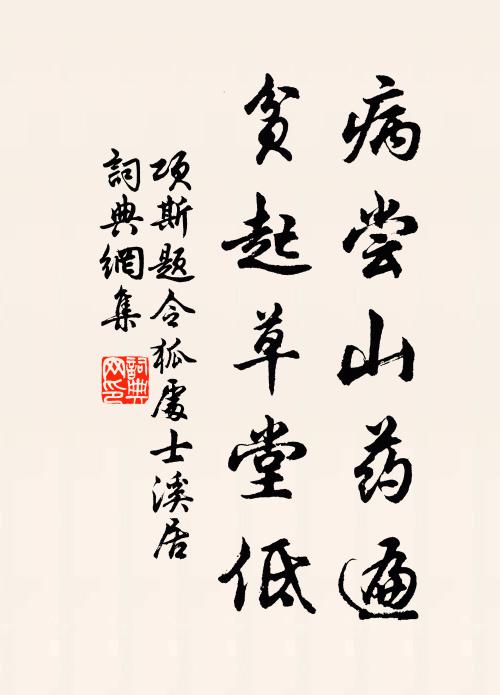 病尝山药遍
贫起草堂低
项斯题令狐處士溪居
詞典網集
詞典網印